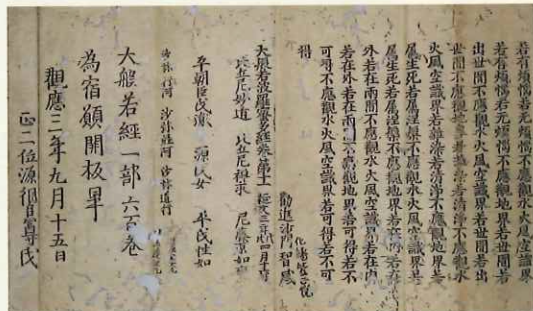 若有煩惱若無煩惱不應觀水火風空識界
若有煩惱若無煩惱不應觀地界若世間若
出世間不應觀水火風空識界若世間若出
世間不應觀地界若雜染若清淨不應觀水
火風空識界若雜染若清淨不應觀地界若
屬生死若屬涅槃不應觀水火風空識界若
屬生死若屬涅槃不應觀地界若在內若在
外若在兩間不應觀水火風空識界若在內
若在外若在兩間不應觀地界若可得若不
可得不應觀水火風空識界若可得若不可
得
勸進沙門智感
大般若波羅蜜多經卷第十一
比丘尼妙道 比丘尼 尼
平朝臣氏 源氏女 平氏性如
沙弥行阿 沙弥 沙弥道行
大般若經一部六百卷
為宿願開板畢
觀應三年九月十五日
正二位源朝臣尊氏